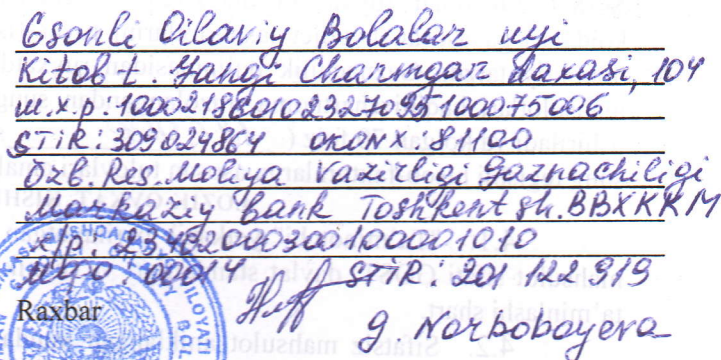 6sonli Oilaviy Bolalar uyi
Kitob t. Yangi Charmgar Maxasi, 104
ш.х.р: 100021860102327095100075006
STiR: 309024864 OKONX: 81100
Özb. Res. Moliya Vazirligi Gaznachiligi
Markaziy bank Toshkent sh. BBXKKM
x/p: 23402000300100001010
МФО: 00014 STiR: 201 122 919
Raxbar
G. Norboboyeva